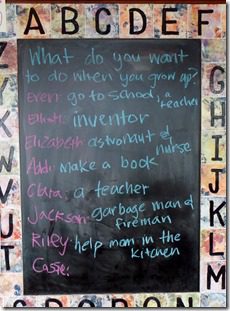 A B C D E F
What do you want
to do when you grow up?
Evert: go to school, a
teacher
Elliott: inventor
Elizabeth: astronaut &
nurse
Addi: make a book
Clara: a teacher
Jackson: garbage man &
fireman
Riley: help mom in the
kitchen
Casse:
G
H
I
J
K
L
M
N
O
P
Q
R
T
U
V
W
X
Y
Z